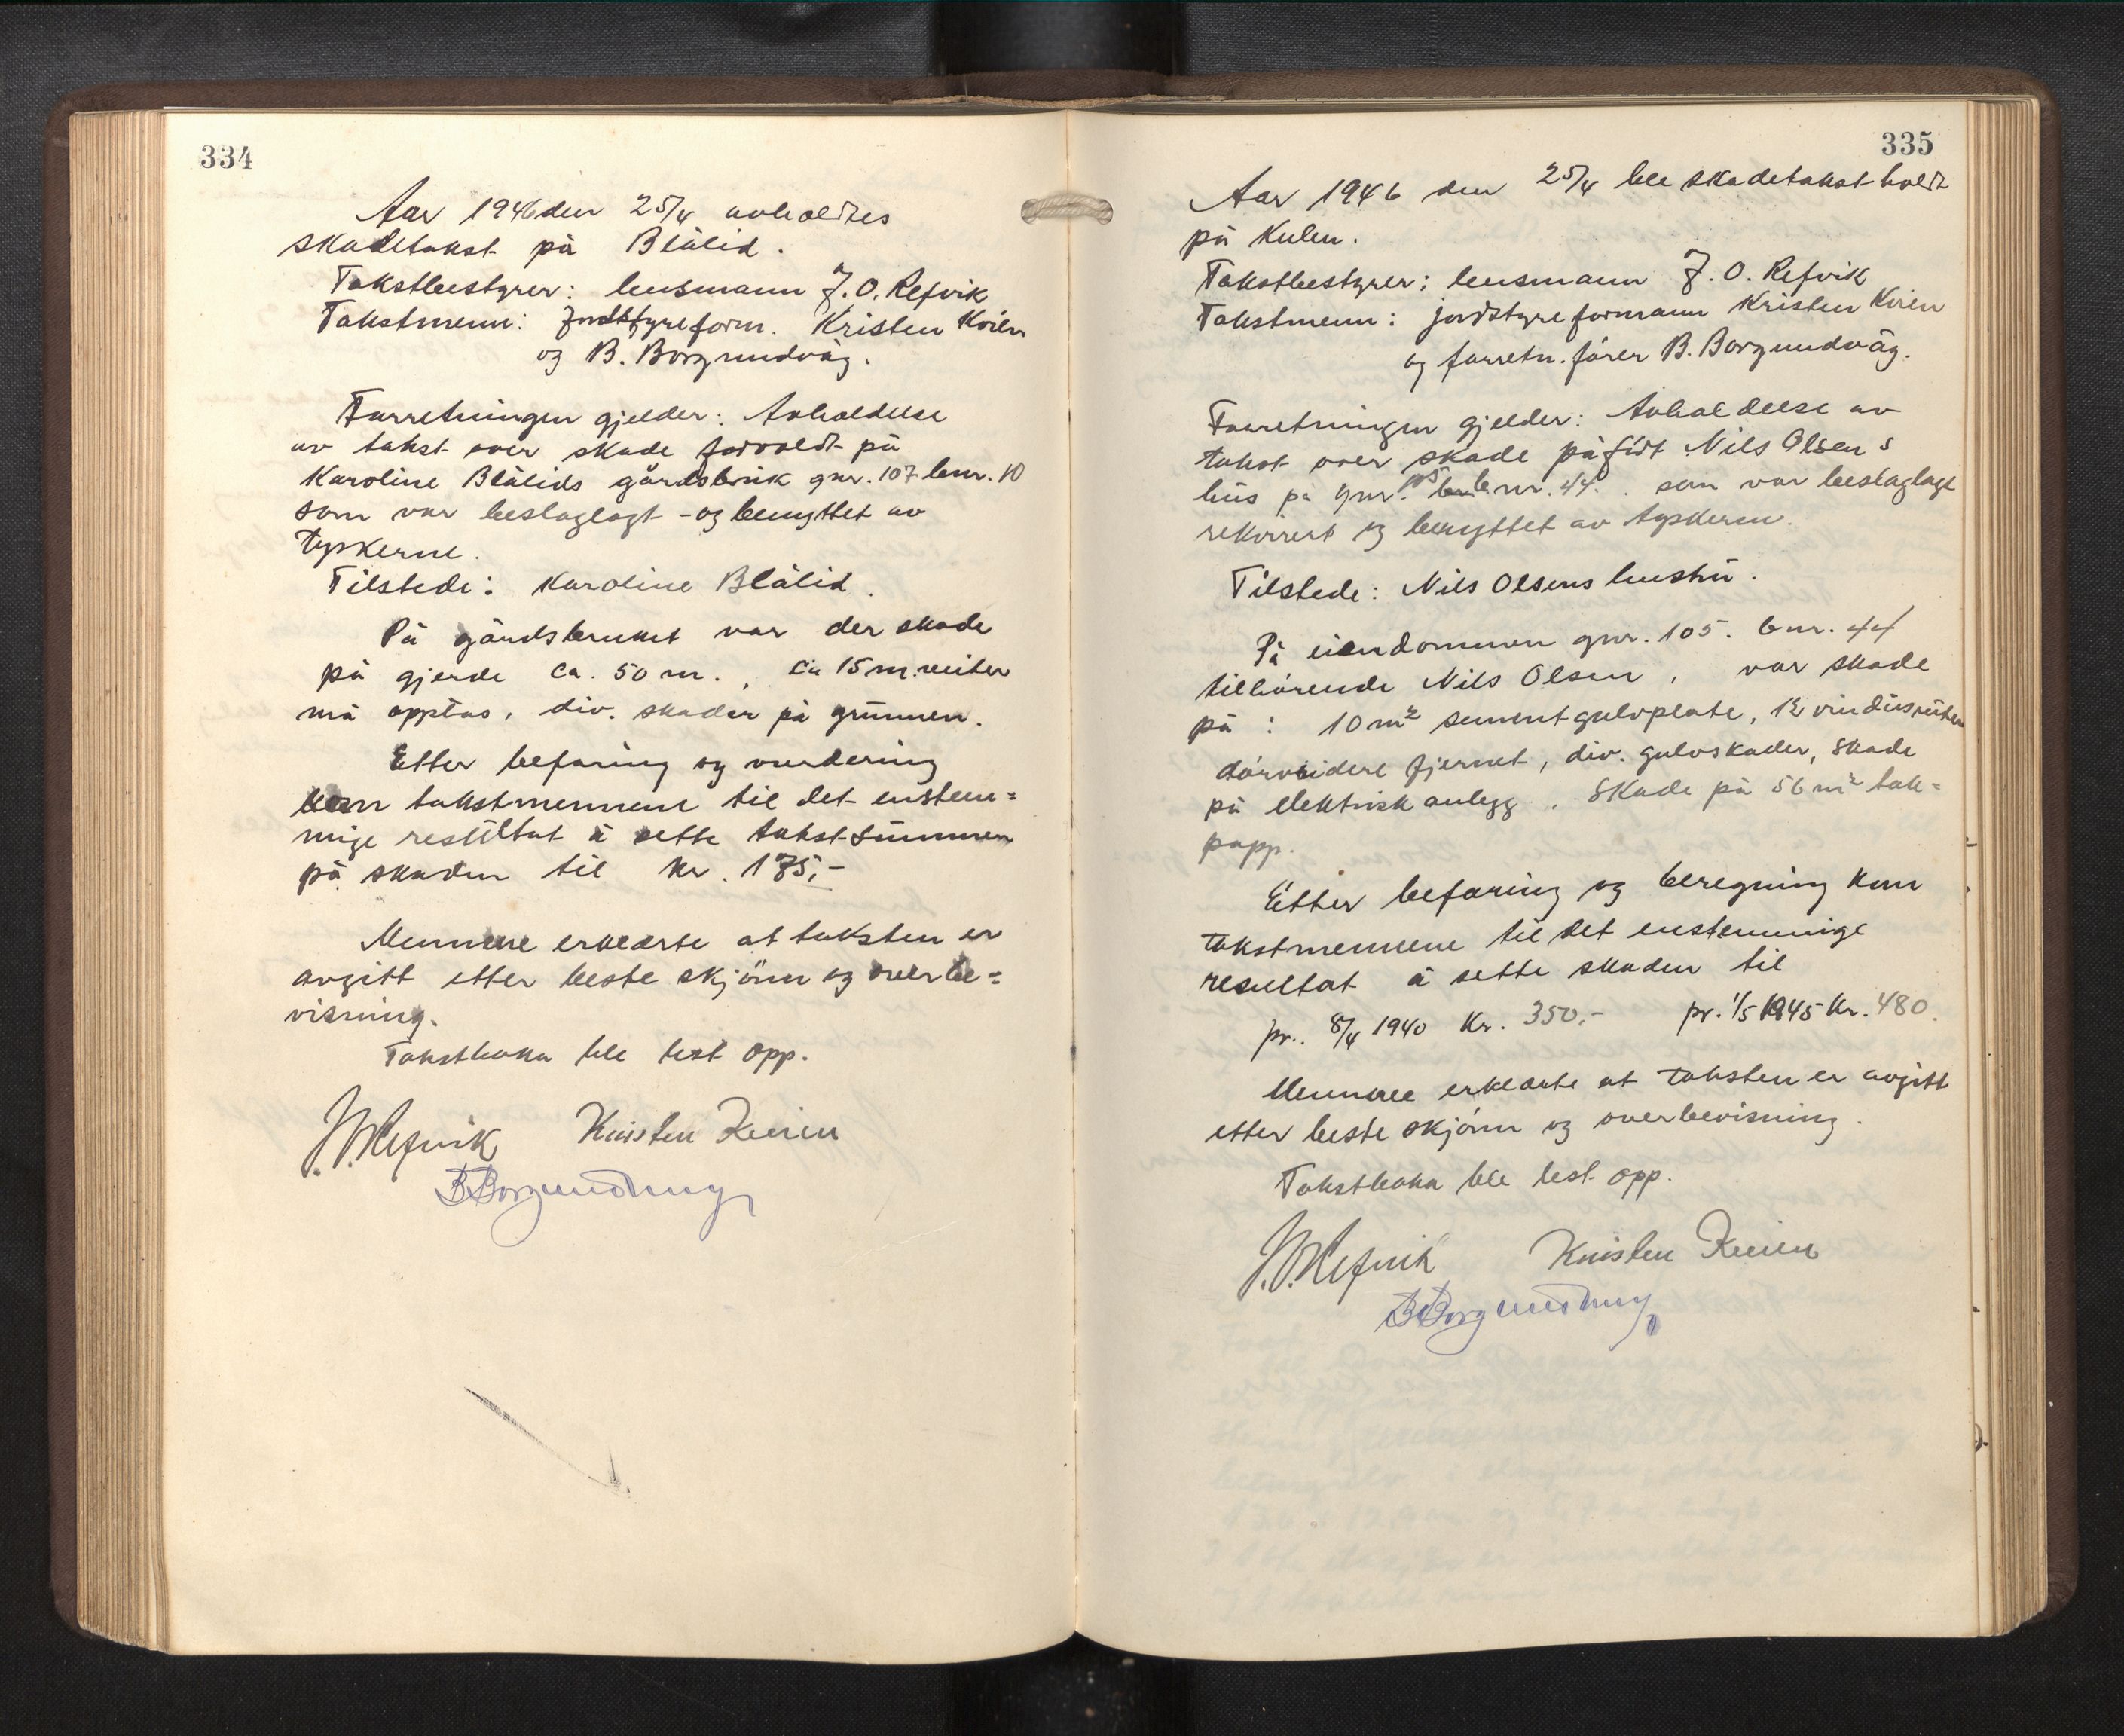 334
Aar 1946 den 25/4 avholdtes
skadetakst på Blålid.
Takstbestyrer: lensmann J. O. Refvik
Takstmenn: jordstyreform. Kristen Kvien
og B. Borgundvåg.
Forretningen gjelder: Avholdelse
av takst over skade forvoldt på
Karoline Blålids gårdsbruk gnr. 107 bnr. 10
som var beslaglagt - og benyttet av
tyskerne.
Tilstede: Karoline Blålid.
På gårdsbruket var der skade
på gjerde ca. 50 m., ca 15 m. veiter
må opptas, div. skader på grunnen.
Etter befaring og vurdering
kom takstmennene til det enstem=
mige resultat å sette takst-summen
på skaden til kr. 175,-
Mennene erklærte at taksten er
avgitt etter beste skjönn og overbe=
visning.
Takstboka ble lest opp.
J. O. Refvik Kristen Kvien
B Borgundvåg
335
Aar 1946 den 25/4 ble skadetakst holdt
på Kulen.
Takstbestyrer: lensmann J. O. Refvik
Takstmenn: jordstyreformann Kristen Kvien
og forretn. fører B. Borgundvåg.
Forretningen gjelder: Avholdelse av
takst over skade påført Nils Olsens
hus på gnr. 105 bnr. 44. som var beslaglagt
rekvirert og benyttet av tyskerne.
Tilstede: Nils Olsens hustru.
På eiendommen gnr. 105. bnr. 44
tilhörende Nils Olsen, var skade
på: 10 m² sementgulvplate, 12 vindusruter
dörvridere fjernet, div. gulvskader, skade
på elektrisk anlegg. Skade på 56 m² tak=
papp.
Etter befaring og beregning kom
takstmennene til det enstemmige
resultat å sette skaden til
pr. 8/4 1940 Kr. 350,- pr. 1/5 1945 Kr. 480.
Mennene erklærte at taksten er avgitt
etter beste skjönn og overbevisning.
Takstboka ble lest opp.
J. O. Refvik Kristen Kvien
B Borgundvåg